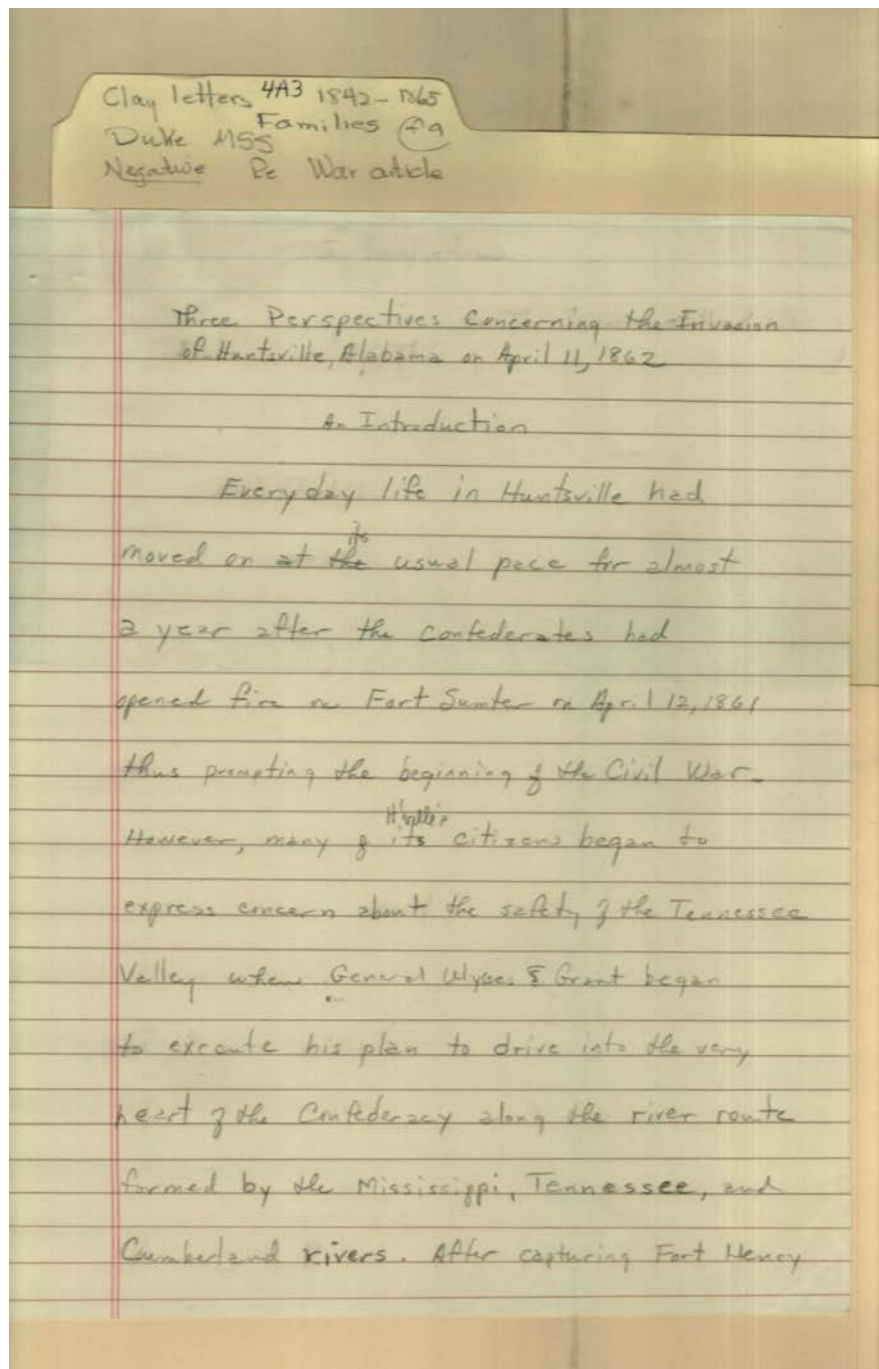 Clay letters 4A3 1842-1865
Families f9
Duke MSS
Negative Re War article
Three Perspectives Concerning the Invasion
of Huntsville, Alabama on April 11, 1862
An Introduction
Everyday life in Huntsville had
its
moved on at the usual pace for almost
a year after the Confederates had
opened fire on Fort Sumter on April 12, 1861
thus prompting the beginning of the Civil War.
H'ville's
However, many of its citizens began to
express concern about the safety of the Tennessee
Valley when General Ulysses S Grant began
to execute his plan to drive into the very
heart of the Confederacy along the river route
formed by the Mississippi, Tennessee, and
Cumberland rivers. After capturing Fort Henry